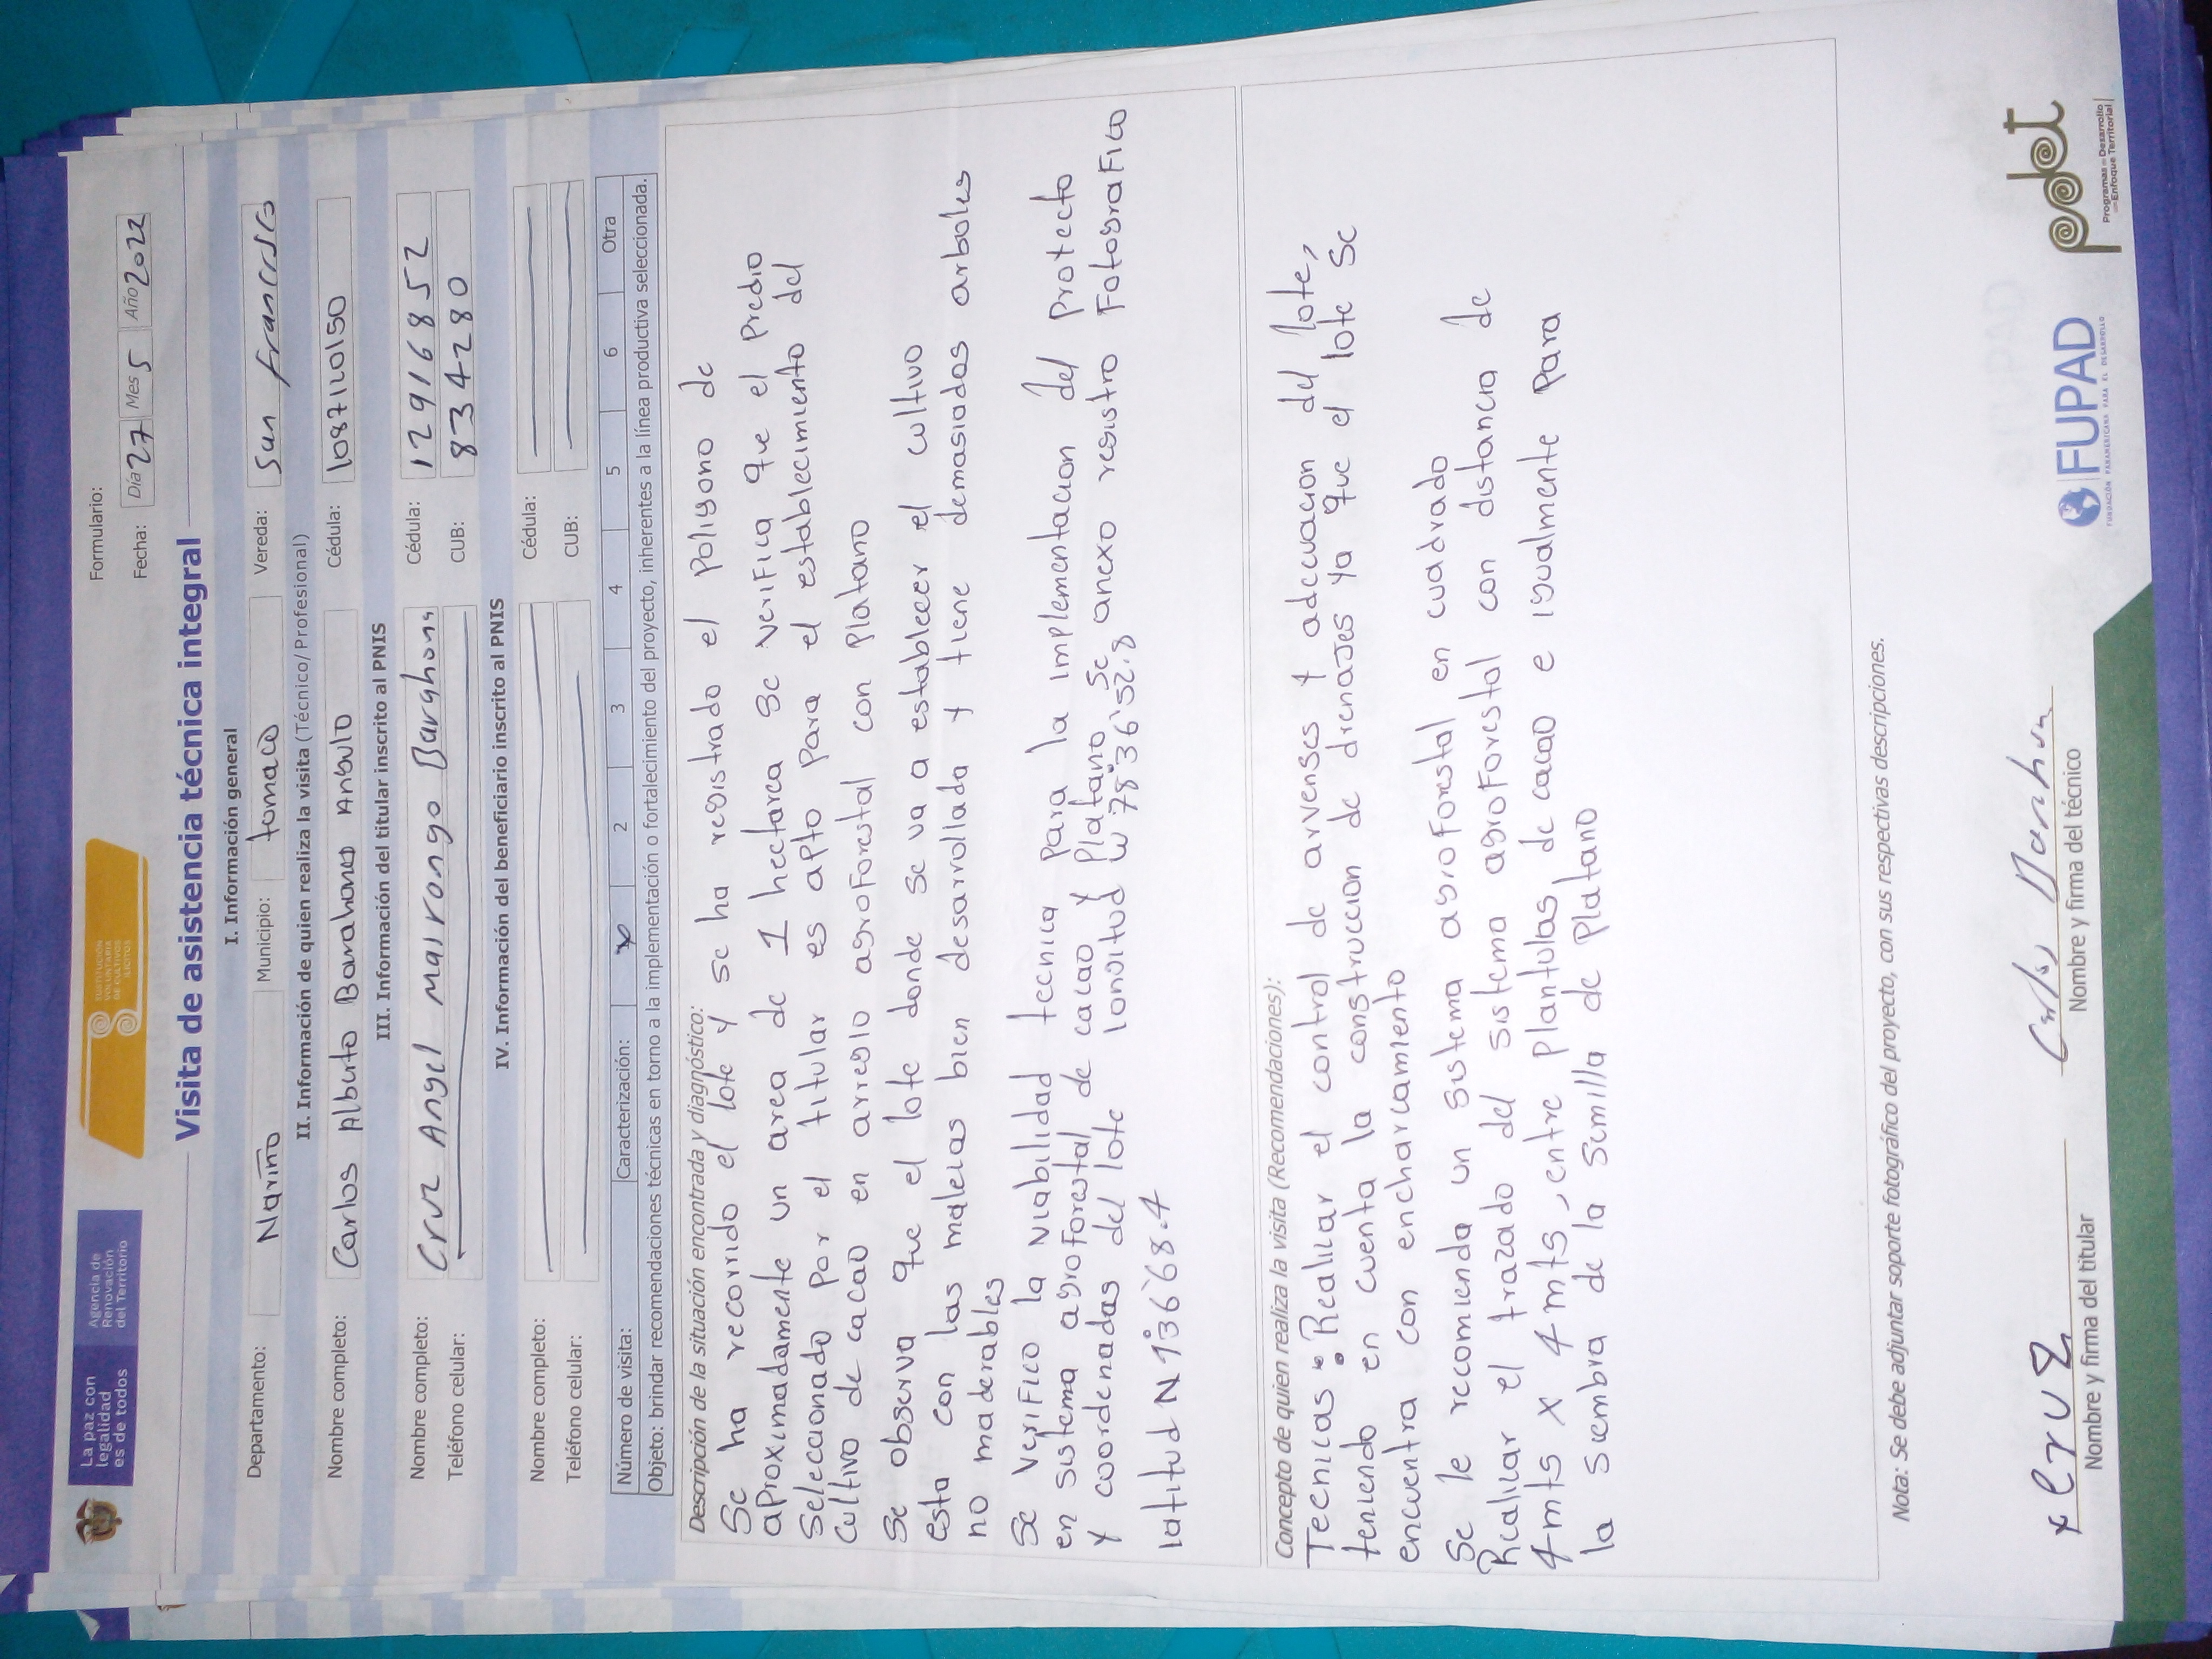 La paz con
legalidad
es de todos
Agencia de
Renovación
del Territorio
SUSTITUCIÓN
VOLUNTARIA
DE CULTIVOS
ILÍCITOS
Formulario:
Fecha: Día 27 Mes 5 Año 2022
Visita de asistencia técnica integral
I. Información general
Departamento: Nariño Municipio: tumaco Vereda: San Francisco
II. Información de quien realiza la visita (Técnico/Profesional)
Nombre completo: Carlos Alberto Barahona Angulo Cédula: 1087120150
III. Información del titular inscrito al PNIS
Nombre completo: Cruz Angel mairongo Barahona Cédula: 12916852
Teléfono celular: CUB: 834280
IV. Información del beneficiario inscrito al PNIS
Nombre completo: Cédula:
Teléfono celular: CUB:
Número de visita: Caracterización: x 2 3 4 5 6 Otra
Objeto: brindar recomendaciones técnicas en torno a la implementación o fortalecimiento del proyecto, inherentes a la línea productiva seleccionada.
Descripción de la situación encontrada y diagnóstico:
Se ha recorrido el lote y se ha registrado el Poligono de
aproximadamente un area de 1 hectarea se verifica que el Predio
Seleccionado por el titular es apto para el establecimiento del
cultivo de cacao en arreglo agroforestal con Platano
Se observa que el lote donde se va a establecer el cultivo
esta con las malezas bien desarrollada y tiene demasiados arboles
no maderables
Se verifico la viabilidad tecnica para la implementacion del Protecto
en sistema agroforestal de cacao y Platano se anexo registro Fotografico
y coordenadas del lote longitud W 78°36'52.8
latitud N 1°36'68.4
Concepto de quien realiza la visita (Recomendaciones):
Tecnicas: Realizar el control de arvenses y adecuacion del lote,
teniendo en cuenta la construccion de drenajes ya que el lote se
encuentra con encharcamiento
Se le recomienda un sistema agroforestal en cuadrado
Realizar el trazado del sistema agroforestal con distancia de
4mts x 4mts, entre Plantulas de cacao e igualmente Para
la siembra de la semilla de Platano
Nota: Se debe adjuntar soporte fotográfico del proyecto, con sus respectivas descripciones.
x CrUZ
Nombre y firma del titular
Nombre y firma del técnico
FUPAD
FUNDACIÓN PANAMERICANA PARA EL DESARROLLO
pdet
Programas de Desarrollo
con Enfoque Territorial